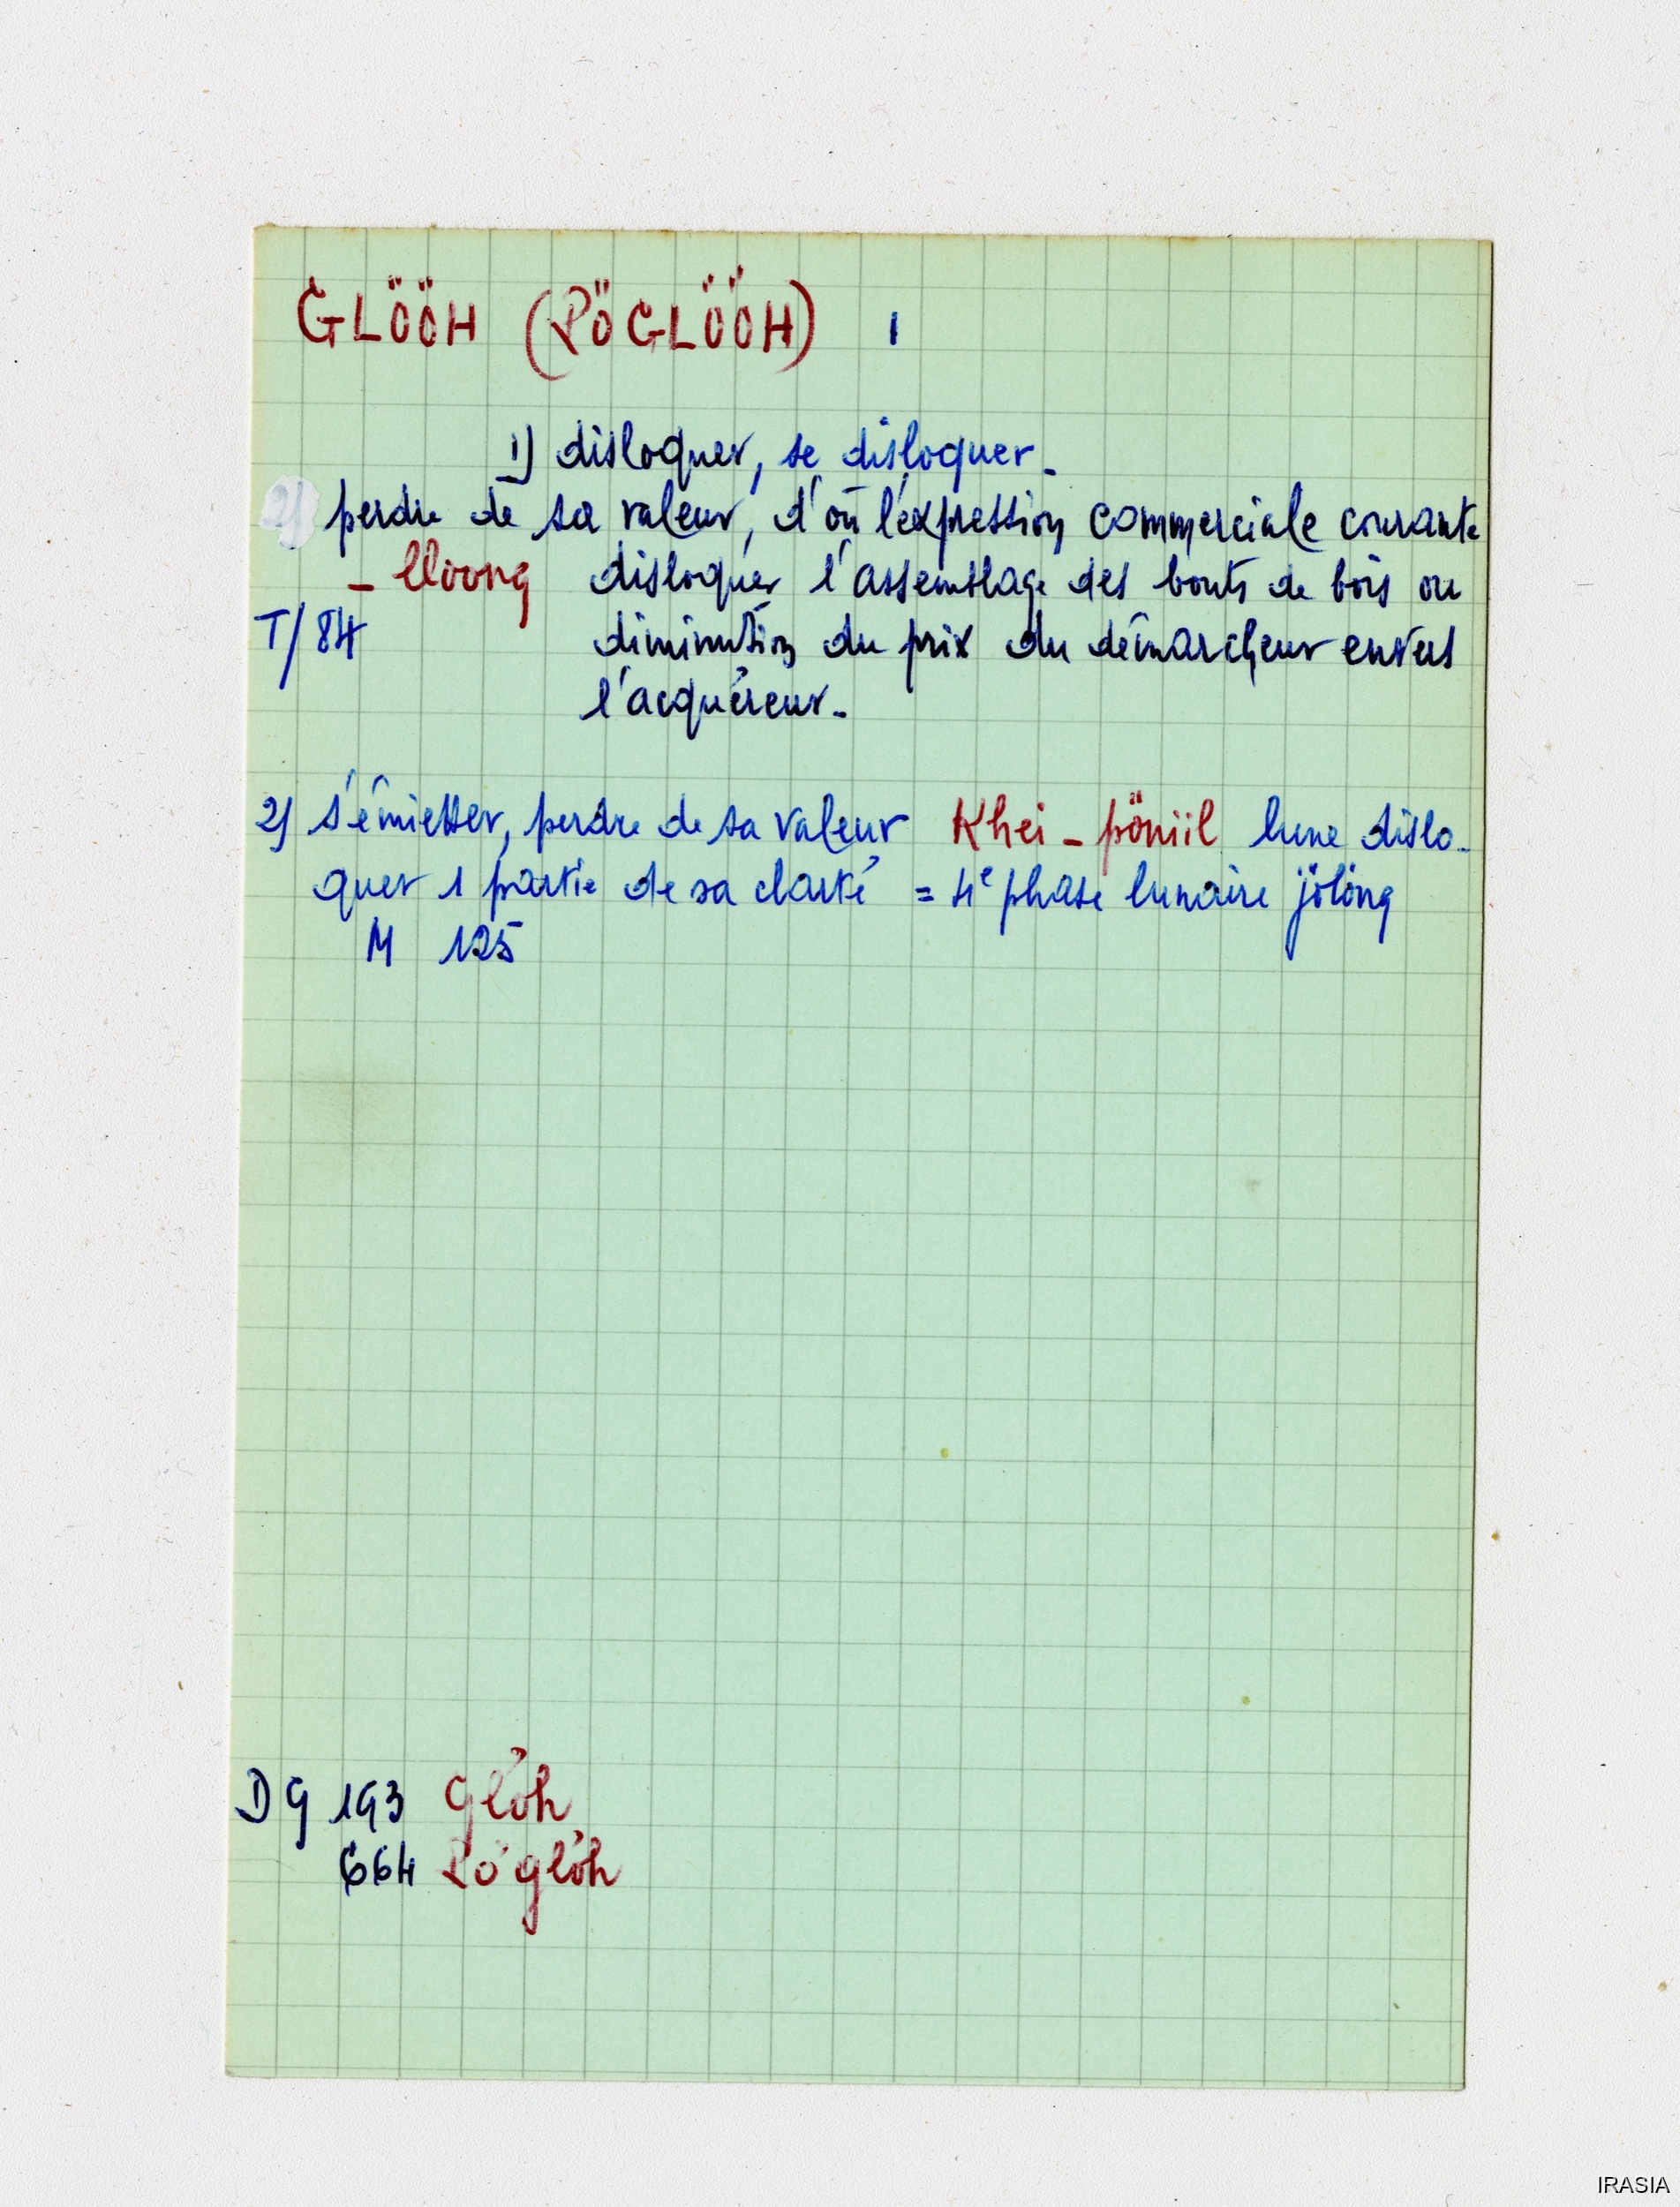 GLÖÖH (PÖGLÖÖH) 1
1) disloquer, se disloquer.
2) perdre de sa valeur, d'où l'expression commerciale courante
_ lloong disloquer l'assemblage des bouts de bois ou
T/84 diminution du prix du démarcheur envers
l'acquéreur.
2) s'émietter, perdre de sa valeur Khei _ pöniil lune dislo-
quer 1 partie de sa clarté = 4e phase lunaire jölöng
M 125
DG 193 glơh
664 Pơglơh
IRASIA